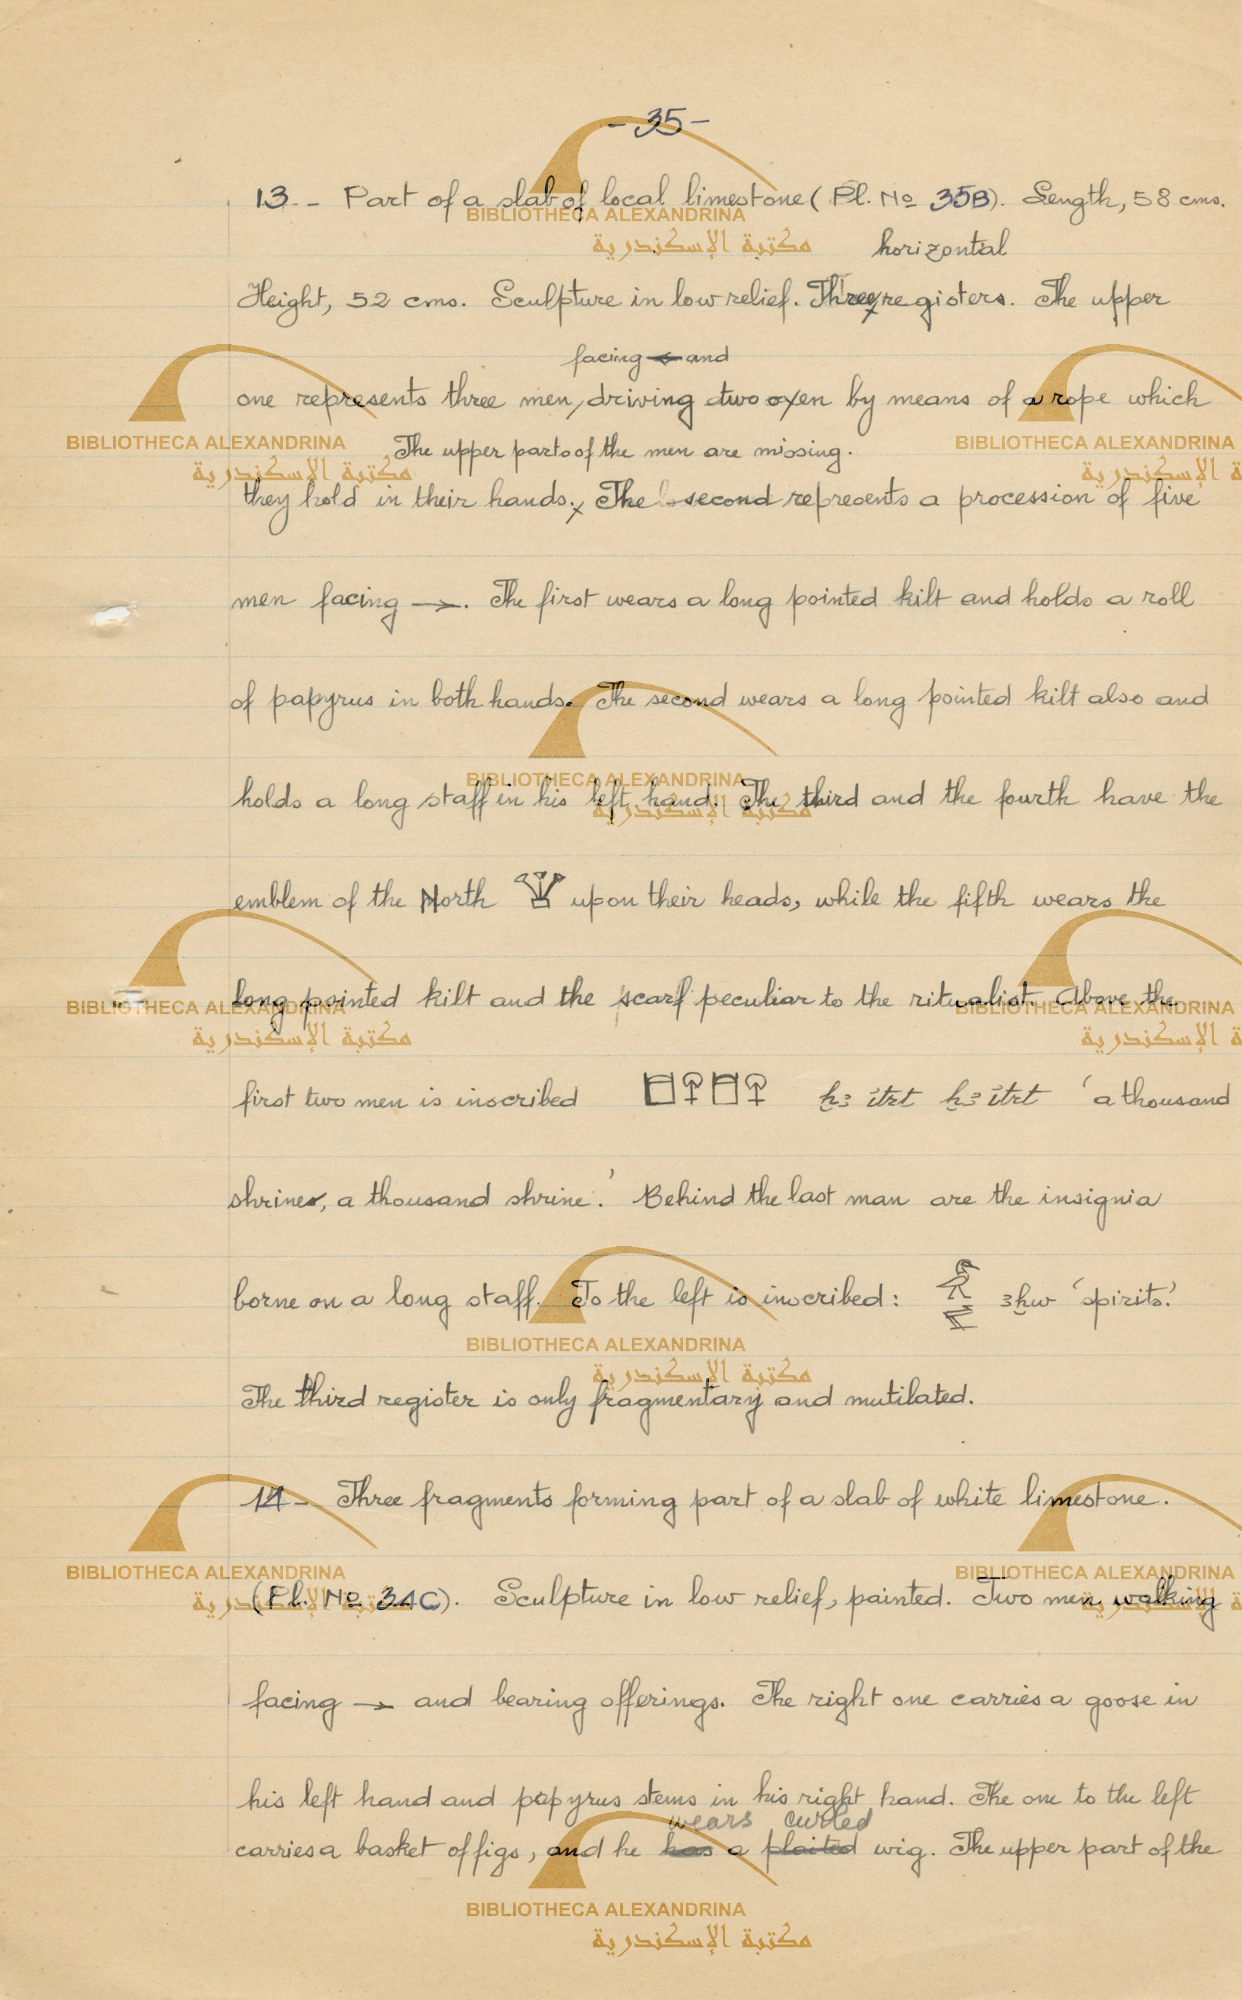 - 35 -
13 - Part of a slab of local limestone (Pl. No 35B). Length, 58 cms.
horizontal
Height, 52 cms. Sculpture in low relief. Three registers. The upper
facing ← and
one represents three men, driving two oxen by means of a rope which
The upper parts of the men are missing.
they hold in their hands. The second represents a procession of five
men facing →. The first wears a long pointed kilt and holds a roll
of papyrus in both hands. The second wears a long pointed kilt also and
holds a long staff in his left hand. The third and the fourth have the
emblem of the North upon their heads, while the fifth wears the
long pointed kilt and the scarf peculiar to the ritualist. Above the
first two men is inscribed ḫꜣ ítrt ḫꜣ ítrt 'a thousand
shrine, a thousand shrine.' Behind the last man are the insignia
borne on a long staff. To the left is inscribed: ꜣḫw 'spirits.'
The third register is only fragmentary and mutilated.
14 - Three fragments forming part of a slab of white limestone.
(Pl. No 34C). Sculpture in low relief, painted. Two men walking
facing → and bearing offerings. The right one carries a goose in
his left hand and papyrus stems in his right hand. The one to the left
wears curled
carries a basket of figs, and he has a plaited wig. The upper part of the
BIBLIOTHECA ALEXANDRINA
مكتبة الإسكندرية